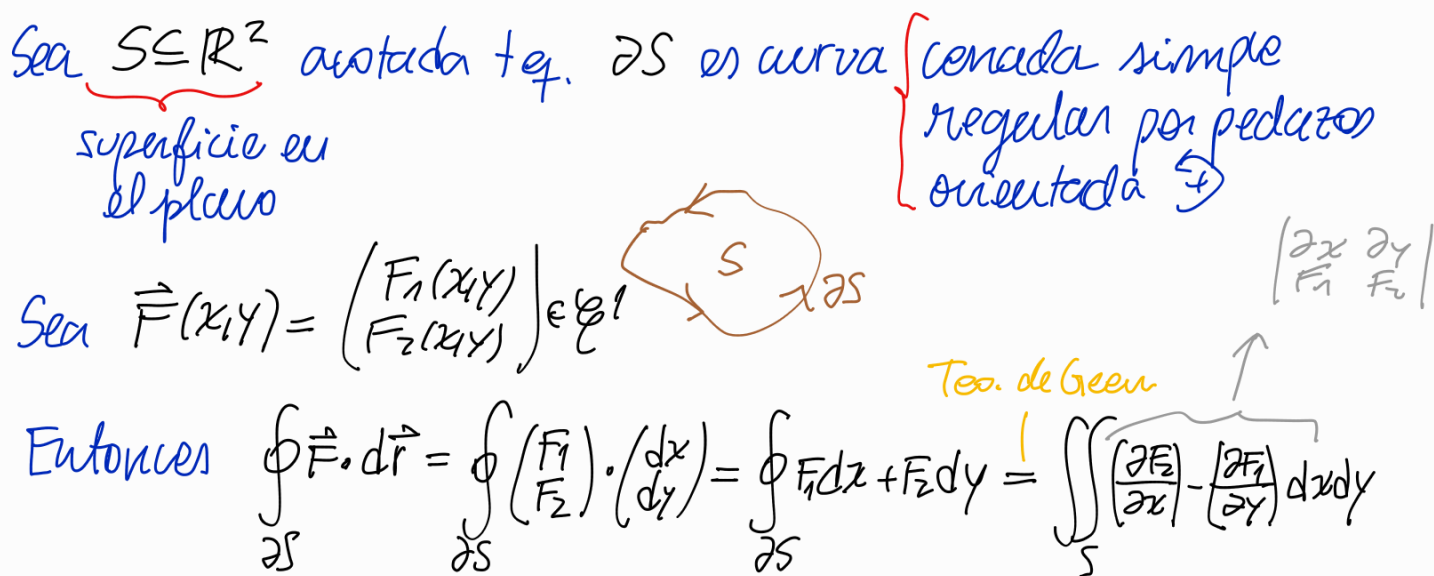 Sea S⊆ℝ² acotada tq. ∂S es curva { cerrada simple
regular por pedazos
orientada +
superficie en
el plano
S
∂S
|∂x ∂y|
|F₁ F₂|
Sea F⃗(x,y) = (F₁(x,y) F₂(x,y)) ∈ 𝒞¹
Teo. de Green
Entonces ∮_∂S F⃗·dr⃗ = ∮_∂S (F₁ F₂)·(dx dy) = ∮_∂S F₁dx + F₂dy = ∬_S (∂F₂/∂x) - (∂F₁/∂y) dxdy